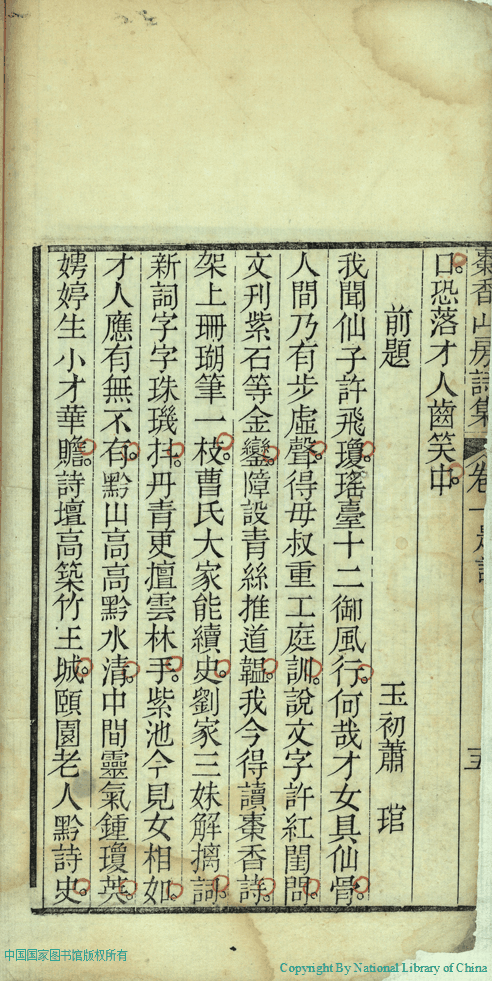 棗香山房詩集 卷一 題詞 五
口恐落才人齒笑中
前題 玉初蕭琯
我聞仙子許飛瓊瑤臺十二御風行何哉才女具仙骨
人間乃有步虛聲得毋叔重工庭訓說文字許紅閨問
文刋紫石等金鑾障設青絲推道韞我今得讀棗香詩
架上珊瑚筆一枝曹氏大家能續史劉家三妹解摛詞
新詞字字珠璣抖丹青更擅雲林手紫池今見女相如
才人應有無不有黔山高高黔水清中間靈氣鍾瓊英
娉婷生小才華贍詩壇高築竹王城頤園老人黔詩史
中国国家图书馆版权所有
Copyright By National Library of China